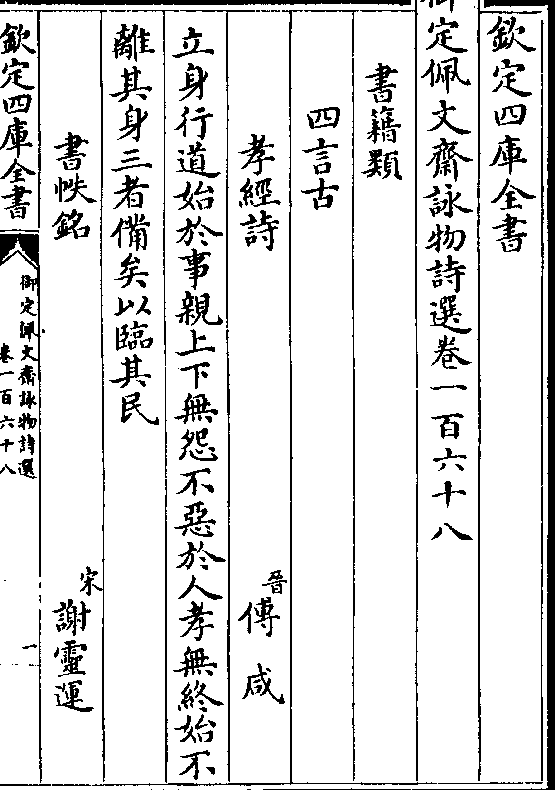 欽定四庫全書
御定佩文齋詠物詩選卷一百六十八
書籍類
四言古
孝經詩 晉 傅咸
立身行道始於事親上下無怨不惡於人孝無終始不
離其身三者備矣以臨其民
書帙銘 宋 謝靈運
欽定四庫全書
御定佩文齋詠物詩選
卷一百六十八
一